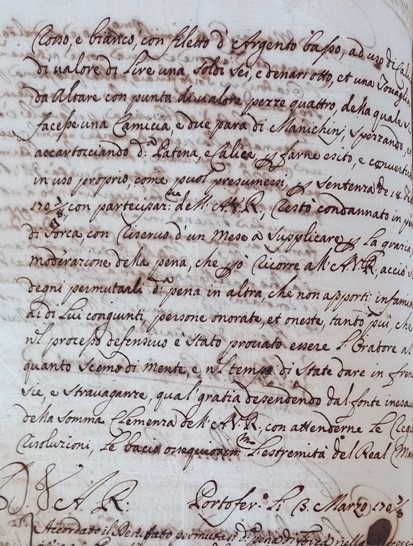 Rosso, e bianco, con filetto d'Argento basso, ad uso di Cal
di valore di Lire una, soldi sei, e denari otto, et una Tovagl
da Altare con punta di valore pezze quattro, della quale s
facesse una Camicia, e due para di Manichini, sperando, e
accartocciando d.ª Patena, e Calice farne esito, e convert
in uso proprio, come puol presumersi; Sentenza de 18
con partecipaz.ne dell'A.V.R., restò condannato in p
di Forca con riserva d'un Mese a supplicare la grazia
moderazione della pena, che p.ò ricorre all'A.V.R., acciò s
degni permutarli d.ª pena in altra, che non apporti infam
ai di Lui congiunti, persone onorate, et oneste, tanto più, che
nel processo defensivo è stato provato essere l'Oratore al
quanto scemo di mente, e nel tempo di state dare in fren
sie, e stravaganze, qual gratia descendendo dal fonte inesau
della somma Clemenza dell'A.V.R. con attenderne le
Resoluzioni, le bacio ossequios.m l'estremità del Real Man
D. V. A. R. Portofer.º li 3. Marzo
Accordato il